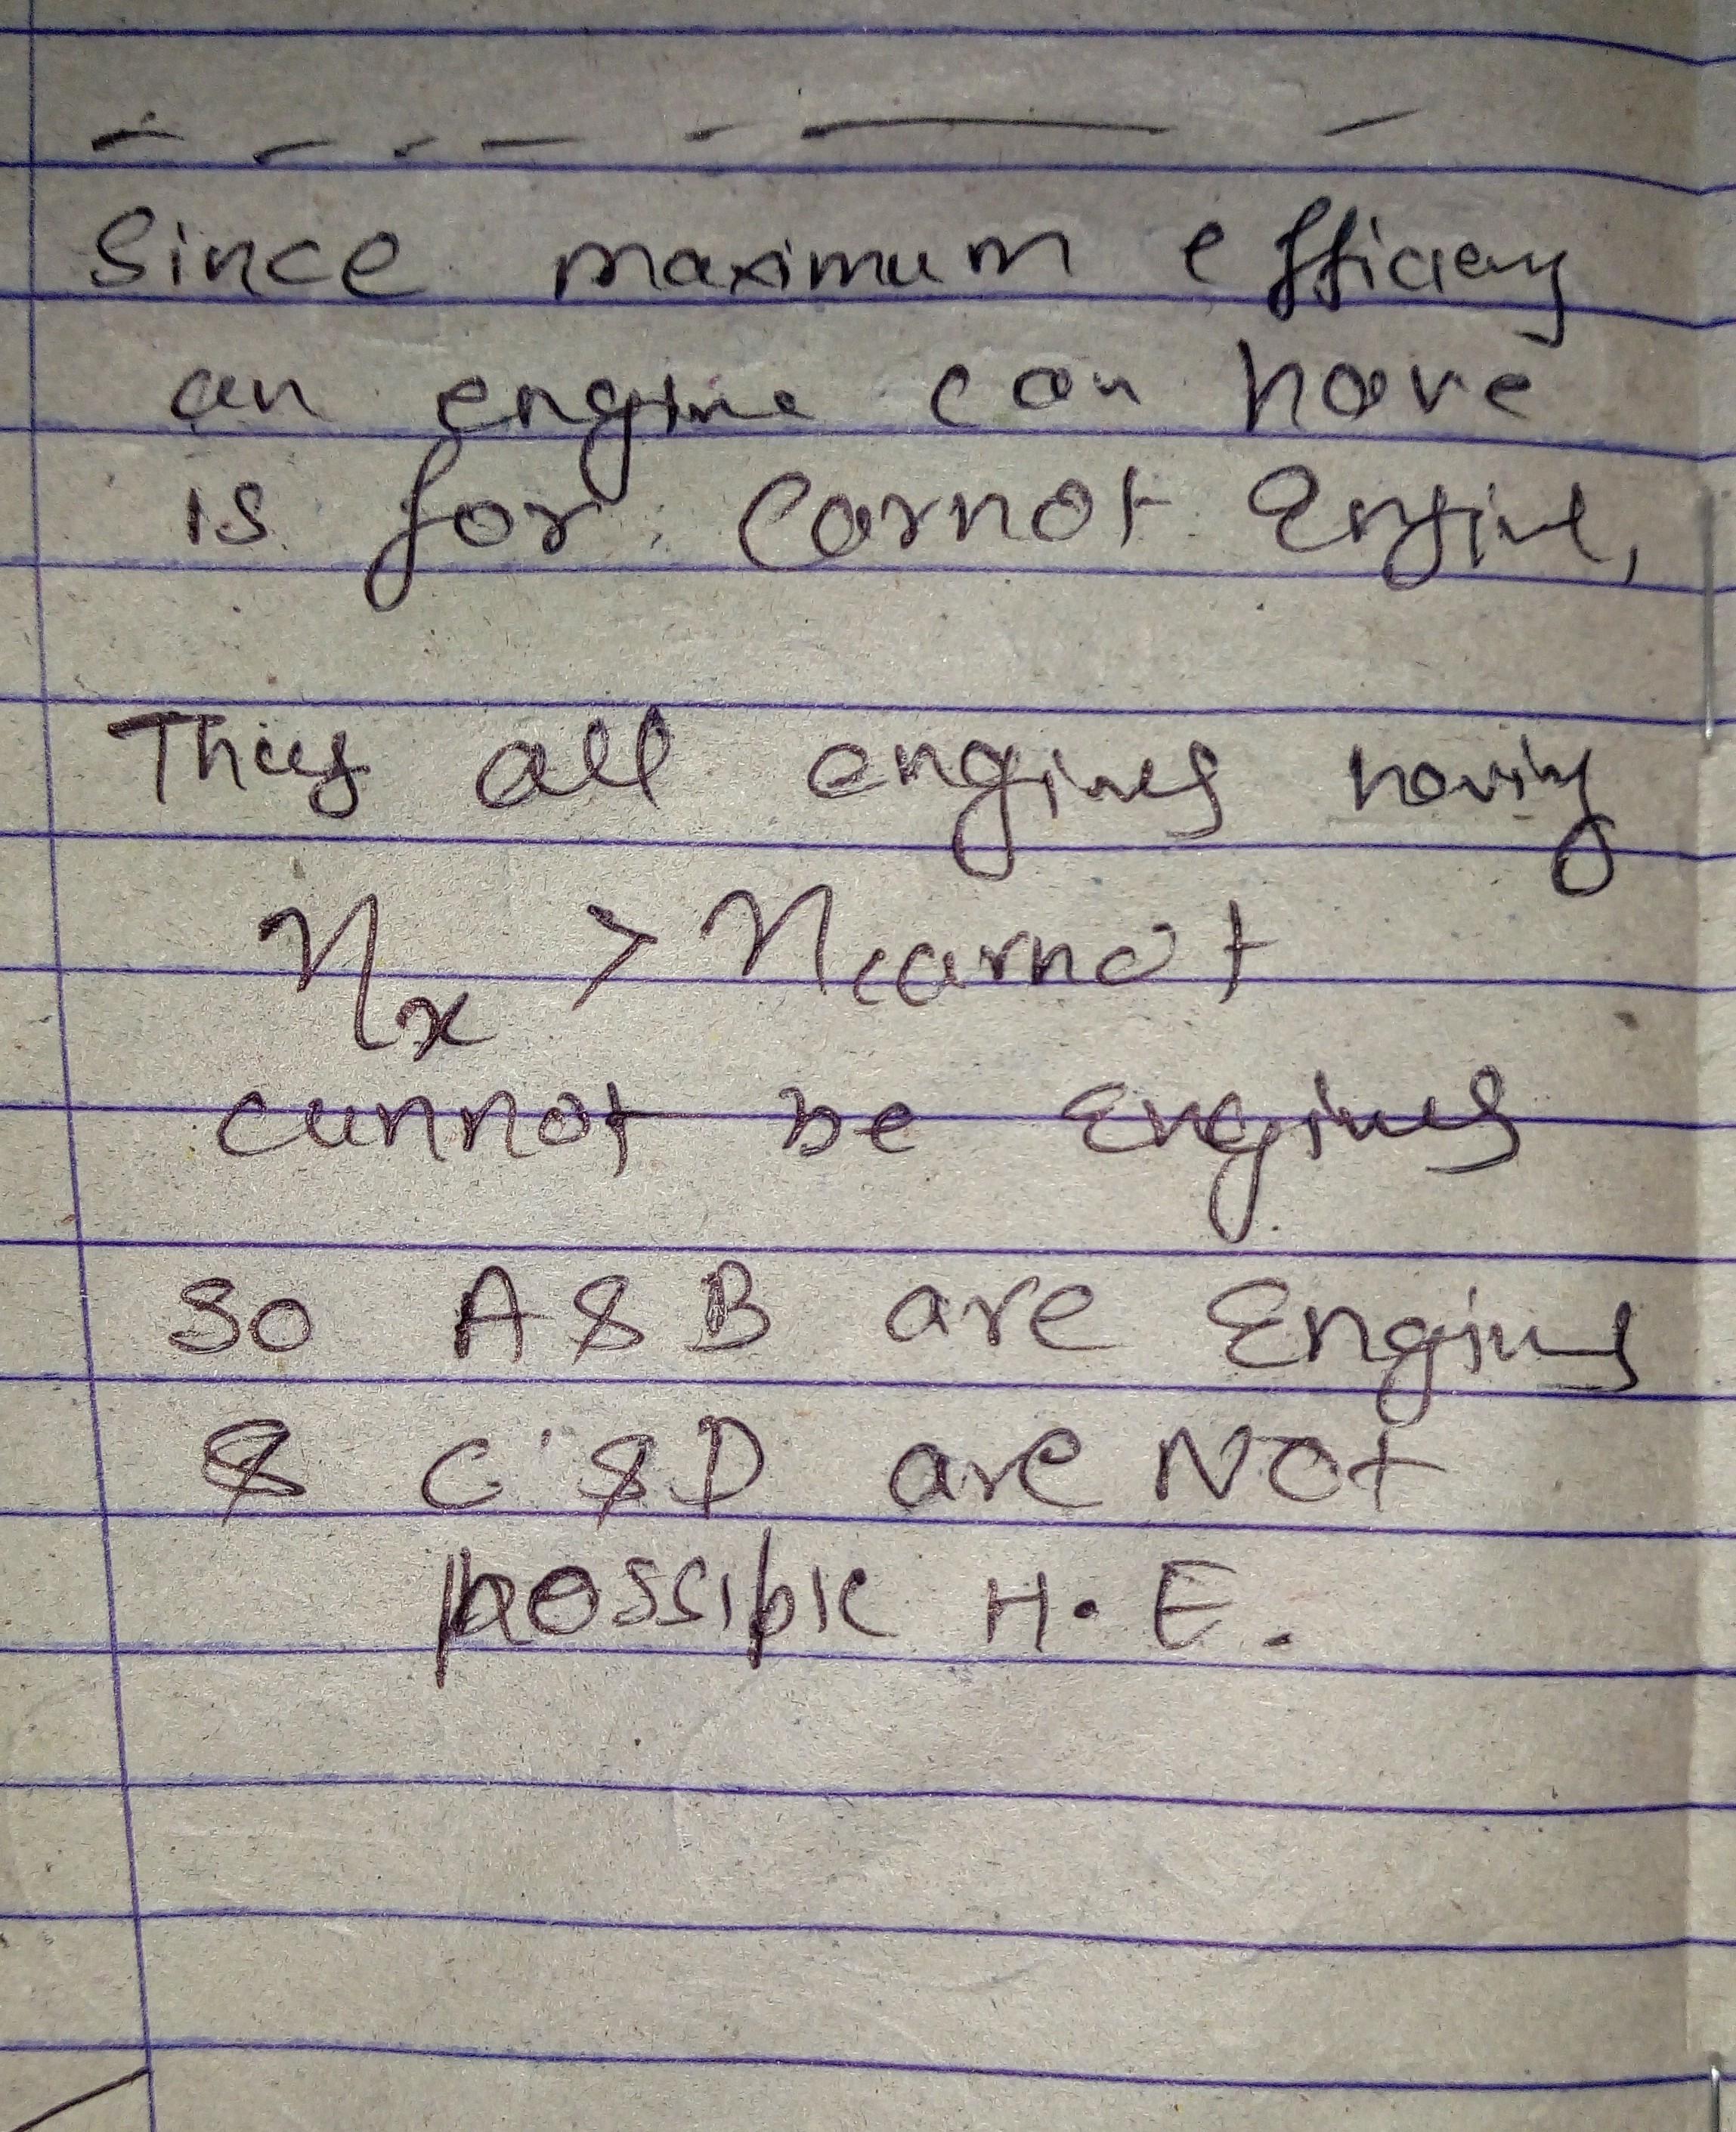 Since maximum efficiency
an engine can have
is for Carnot Engine,
Thus all engines having
η_x > η_carnot
cannot be Engines
So A & B are Engines
& C & D are Not
possible H.E.